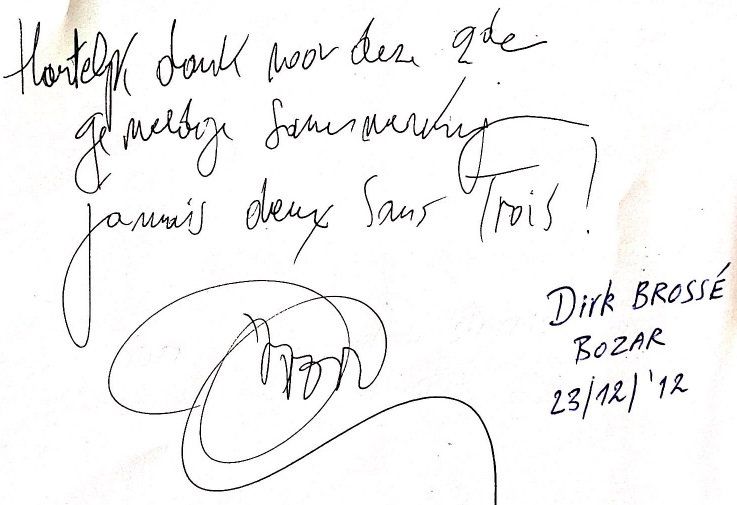 Hartelijk dank voor deze 2de
geweldige samenwerking
jamais deux sans Trois !
Dirk BROSSÉ
BOZAR
23/12/'12